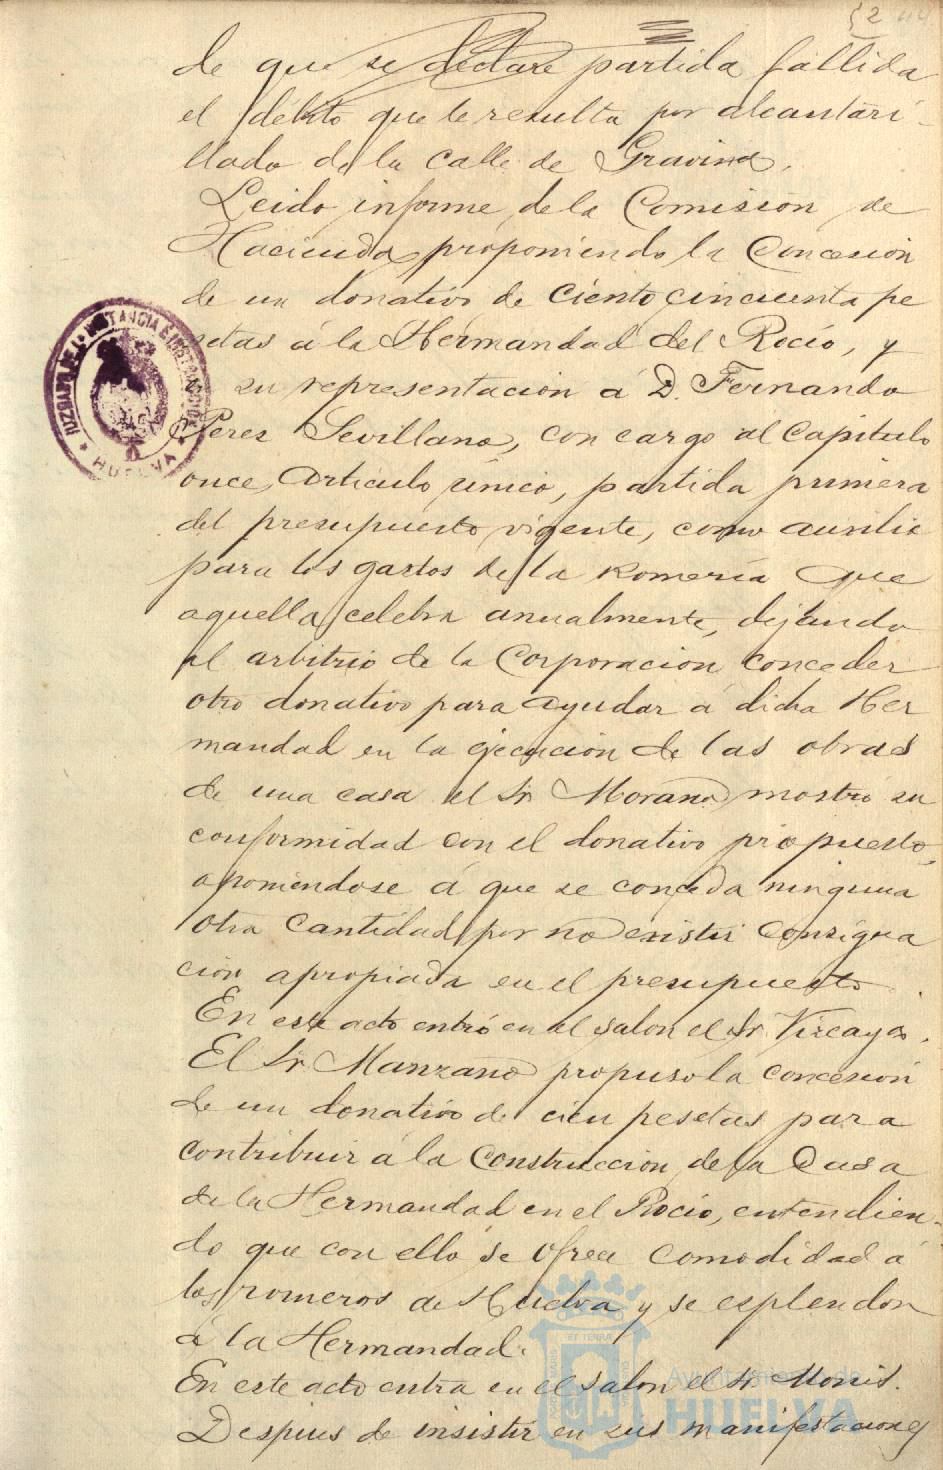 52
de que se declare partida fallida
el débito que le resulta por alcantari-
llado de la calle de Gravina.
Leido informe de la Comisión de
Hacienda proponiendo la concesión
de un donativo de ciento cincuenta pe
setas á la Hermandad del Rocío, y
su representación á D. Fernando
Perez Sevillano, con cargo al Capitulo
once, Articulo único, partida primera
del presupuesto vigente, como auxilio
para los gastos de la Romería que
aquella celebra anualmente, dejando
al arbitrio de la Corporación conceder
otro donativo para ayudar á dicha Her
mandad en la ejecución de las obras
de una casa el Sr Morano mostró su
conformidad con el donativo propuesto,
oponiendose á que se conceda ninguna
otra cantidad por no existir consigna
ción apropiada en el presupuesto.
En este acto entró en el salon el Sr. Vizcaya.
El Sr Manzano propuso la concesión
de un donativo de cien pesetas para
contribuir á la construcción de la Casa
de la Hermandad en el Rocío, entendien-
do que con ello se ofrece comodidad á
los romeros de Huelva y se esplendor
á la Hermandad.
En este acto entra en el salon el Sr. Monis.
Despues de insistir en sus manifestaciones
JUZGADO DE 1ª INSTANCIA É INSTRUCCIÓN
HUELVA
Ayuntamiento de
HUELVA